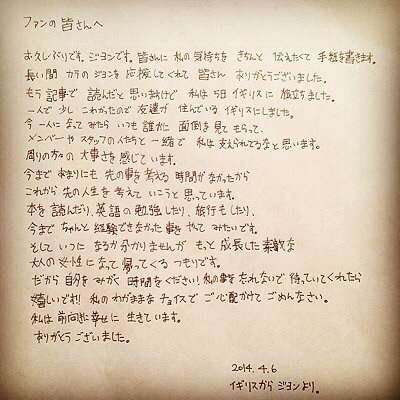 ファンの皆さんへ
お久しぶりです。ジヨンです。皆さんに 私の気持ちを きちんと 伝えたくて 手紙を書きます。
長い間 カラの ジヨンを 応援してくれて 皆さん ありがとうございました。
もう 記事で 読んだと 思いますけど 私は 5日 イギリスに 旅立ちました。
一人で 少し こわかったので 友達が 住んでいる イギリスにしました。
今 一人に なって みたら いつも 誰かに 面倒を 見て もらって、
メンバーや スタッフの 人たちと 一緒で 私は 支えられてるなと 思います。
周りの方々の 大事さを 感じています。
今まで あまりにも 先の事を 考える 時間が なかったから
これから 先の人生を 考えて いこうと 思っています。
本を 読んだり、英語の 勉強したり、旅行もしたり、
今まで ちゃんと 経験できなかった 事を やって みたいです。
そして いつに なるか分かりませんが もっと 成長した 素敵な
大人の 女性に なって 帰ってくる つもりです。
だから 自分を みがく 時間を ください! 私の事を 忘れないで 待っていてくれたら
嬉しいです!! 私の わがままな チョイスで ご心配かけて ごめんなさい。
私は 前向きに 幸せに 生きています。
ありがとうございました。
2014. 4. 6
イギリスから ジヨンより。